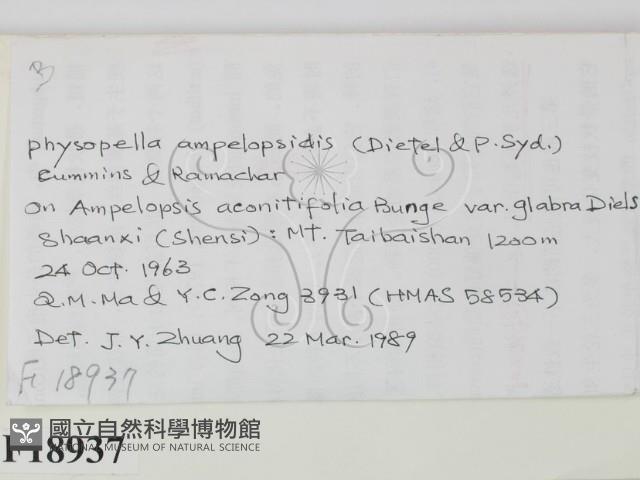 physopella ampelopsidis (Dietel & P. Syd.)
Cummins & Ramachar
on Ampelopsis aconitifolia Bunge var. glabra Diels
Shaanxi (Shensi): Mt. Taibaishan 1200m
24 Oct. 1963
Q.M. Ma & Y.C. Zong 3931 (HMAS 58534)
Det. J.Y. Zhuang 22 Mar. 1989
F 18937
國立自然科學博物館
NATIONAL MUSEUM OF NATURAL SCIENCE
F18937